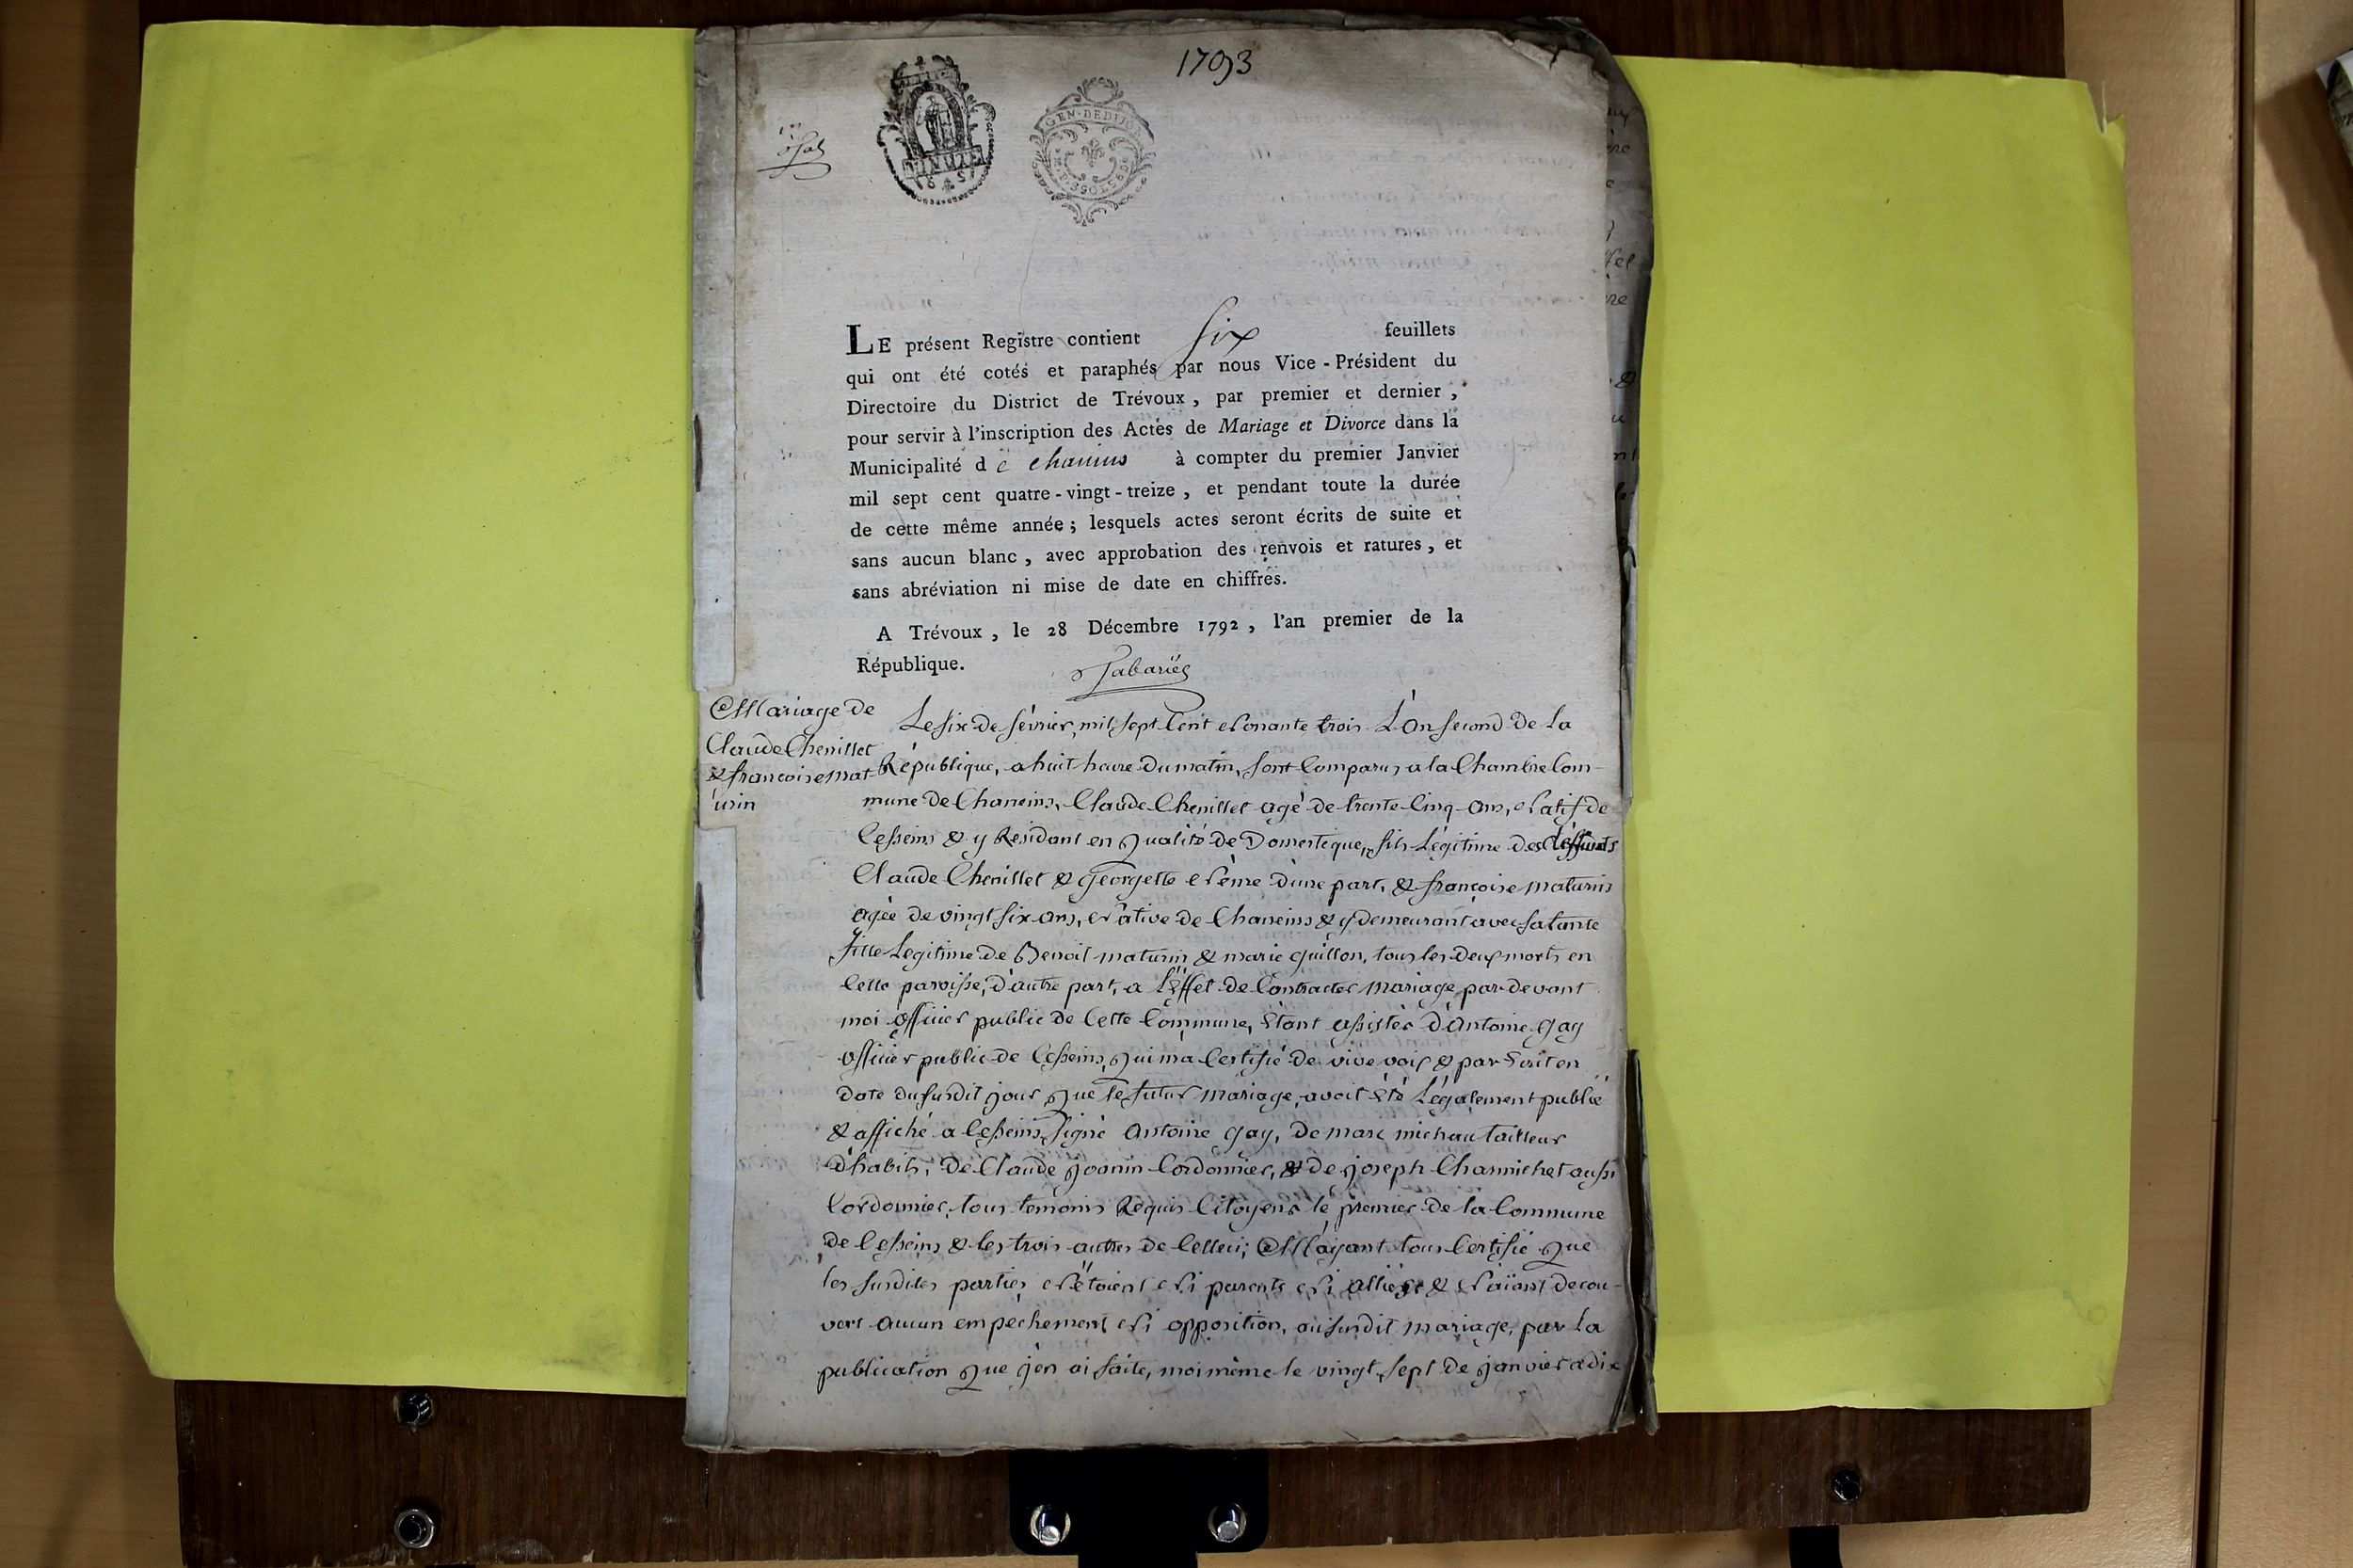 1793
GEN. DE DIJON
LE présent Registre contient six feuillets
qui ont été cotés et paraphés par nous Vice-Président du
Directoire du District de Trévoux, par premier et dernier,
pour servir à l'inscription des Actes de Mariage et Divorce dans la
Municipalité de Chaneins à compter du premier Janvier
mil sept cent quatre-vingt-treize, et pendant toute la durée
de cette même année; lesquels actes seront écrits de suite et
sans aucun blanc, avec approbation des renvois et ratures, et
sans abréviation ni mise de date en chiffres.
A Trévoux, le 28 Décembre 1792, l'an premier de la
République.
Mariage de
Claude Chenillet
& francoise mat
urin
Le six de février, mil sept Cent Nonante trois L'An second de La
République, a huit heure du matin, sont Comparus a la Chambre Com-
mune de Chaneins, Claude Chenillet agé de trente Cinq ans, Natif de
Cesseins & y Residant en qualité de Domestique, fils Légitime des deffunts
Claude Chenillet & georgette Néme d'une part, & françoise maturin
agée de vingt six ans, Native de Chaneins & y demeurant avec sa tante
fille Legitime de Benoit maturin & marie guillon, tous les deux morts en
Cette paroisse, d'autre part, a l'éffet de Contracter mariage par devant
moi officier public de Cette Commune, étant assistés d'Antoine gay
officier public de Cesseins, qui m'a Certifié de vive voix & par Ecrit en
date du susdit jour que le futur mariage, avoit été Légalement publié
& affiché a Cesseins, signé Antoine gay, de marc michau tailleur
d'habits, de Claude joanin Cordonnier, & de joseph Charmichet aussi
Cordonnier, tous temoins Requis Citoyens le premier de la Commune
de Cesseins & les trois autres de Celleci; M'ayant tous Certifié que
les susdites parties N'étoient Ni parents Ni alliés & N'aïant decou-
vert aucun empêchement Ni opposition, au susdit mariage, par la
publication que j'en ai faite, moi même le vingt sept de janvier a dix